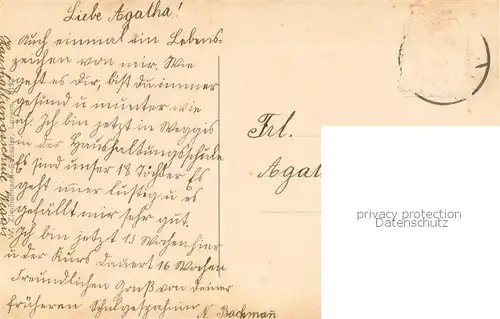 Liebe Agatha!
Auch einmal ein Lebens-
zeichen von mir. Wie
geht es dir, bist du immer
gesund u munter wie
ich. Ich bin jetzt in Weggis
in der Haushaltungsschule
Es sind unser 18 Töchter Es
geht immer lustig u es
gefällt mir sehr gut.
Ich bin jetzt 13 Wochen hier
u der Kurs dauert 16 Wochen
Freundlichen Gruß von deiner
früheren Schulgespahnin N. Bachmañ
Frl.
Agat
privacy protection
Datenschutz